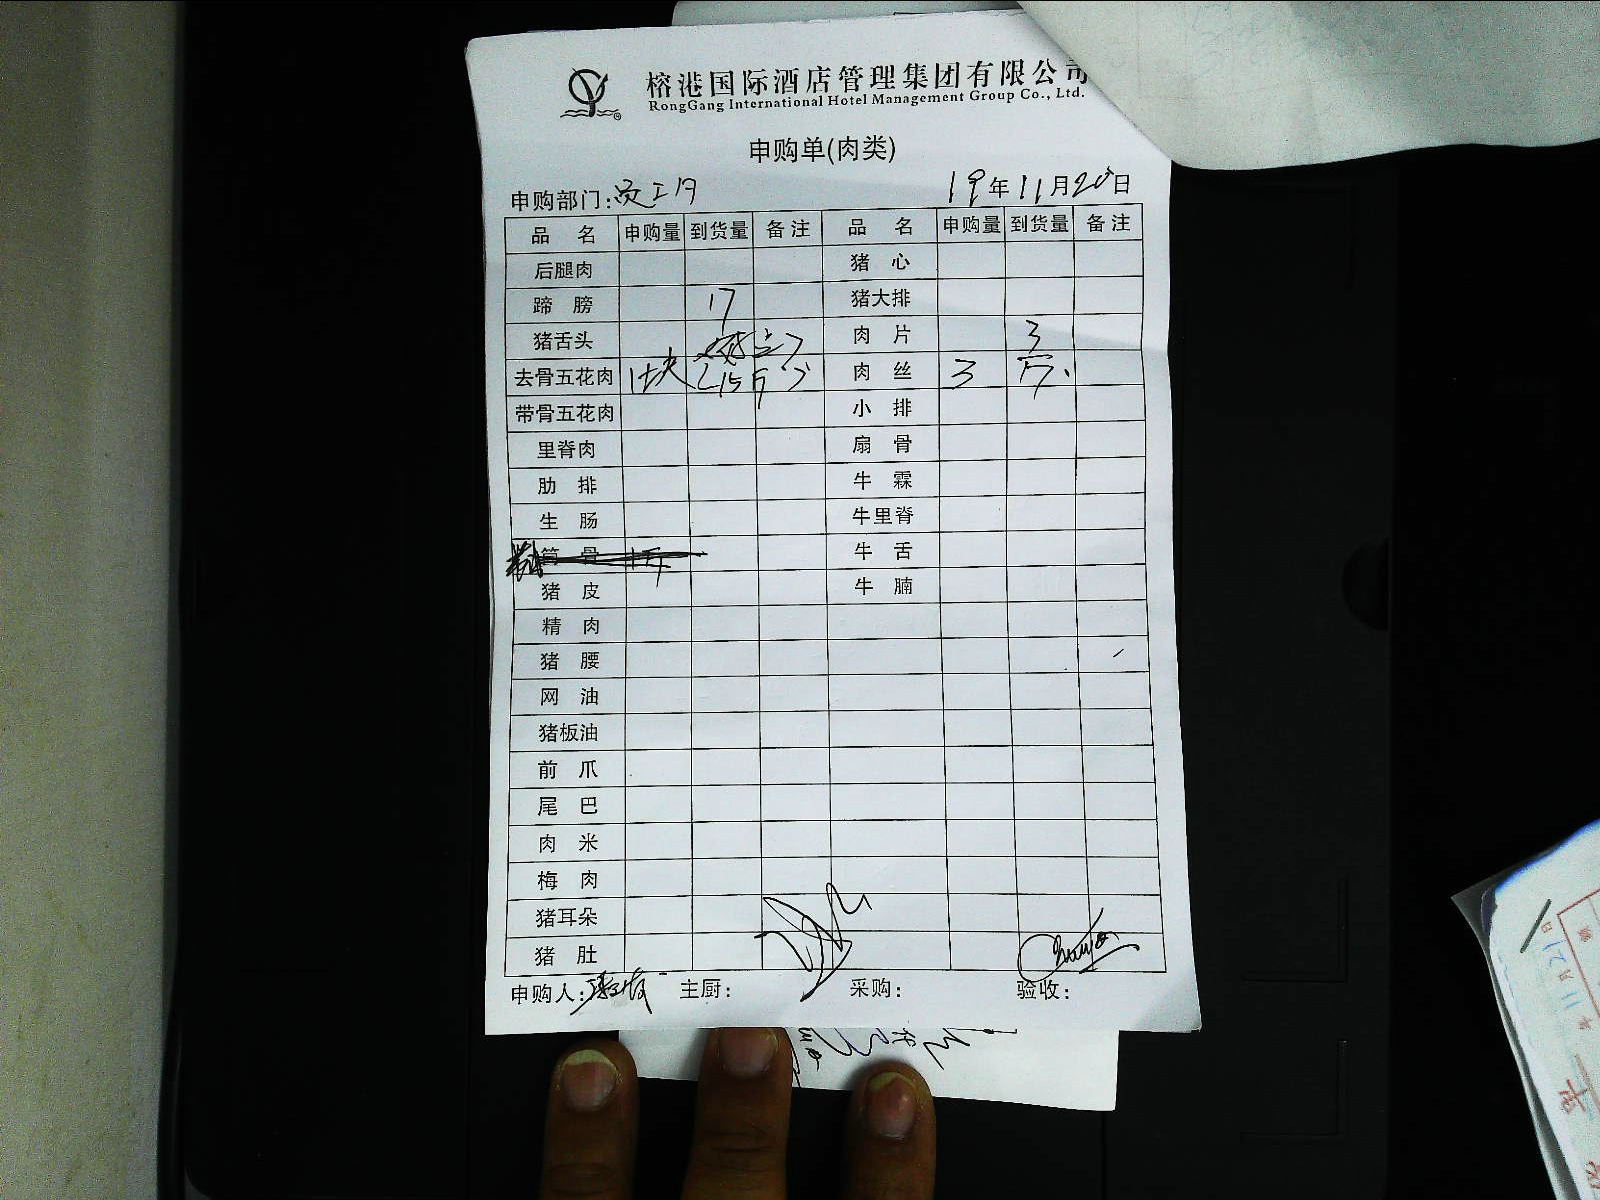 榕港国际酒店管理集团有限公司
RongGang International Hotel Management Group Co., Ltd.
申购单(肉类)
申购部门: 19年11月20日
品名 申购量 到货量 备注 品名 申购量 到货量 备注
后腿肉 猪心
蹄膀 17 猪大排
猪舌头 肉片 3
去骨五花肉 肉丝 3
带骨五花肉 小排
里脊肉 扇骨
肋排 牛霖
生肠 牛里脊
筒骨 牛舌
猪皮 牛腩
精肉
猪腰
网油
猪板油
前爪
尾巴
肉米
梅肉
猪耳朵
猪肚
申购人: 主厨: 采购: 验收: